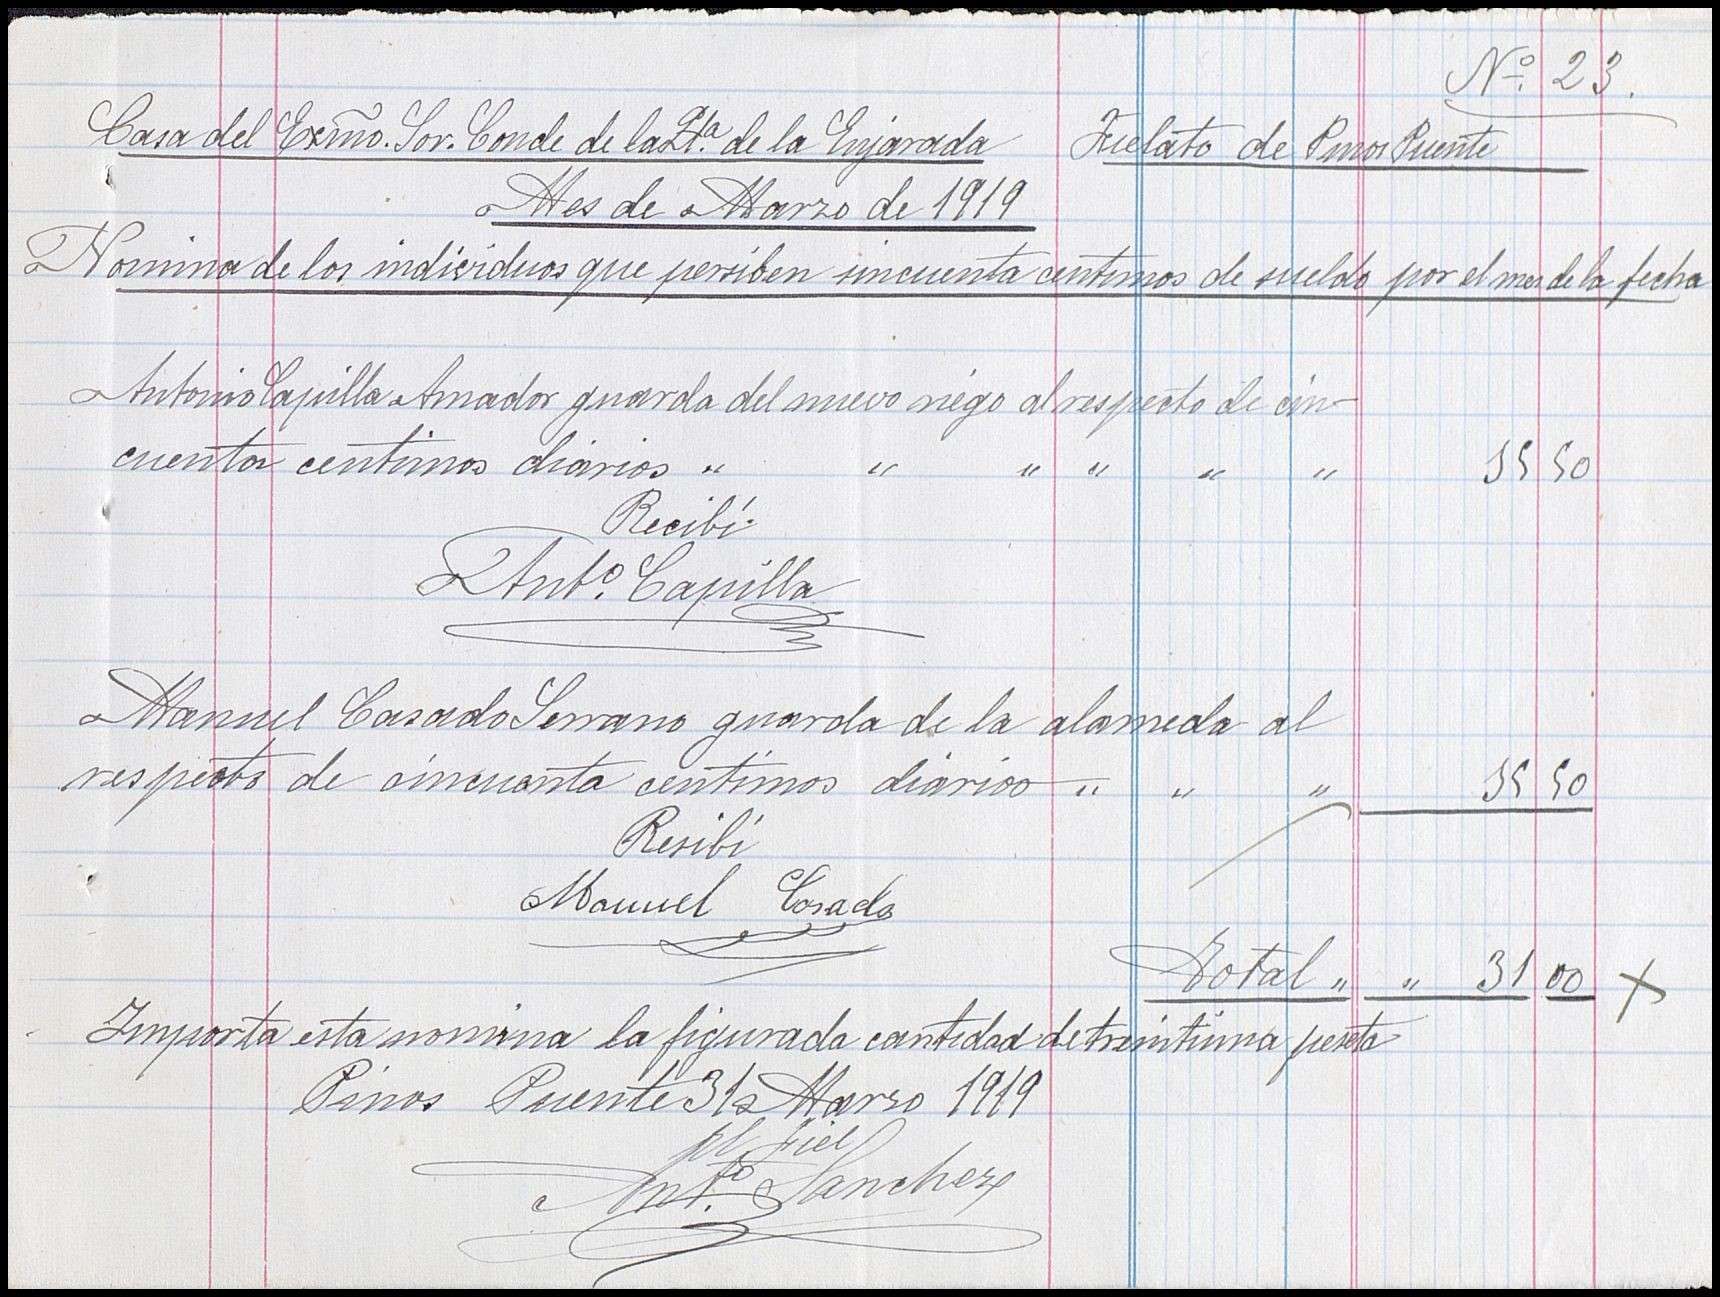 Nº. 23.
Casa del Exmõ. Sor. Conde de la Qta. de la Enjarada Fielato de Pinos Puente
Mes de Marzo de 1919
Nomina de los individuos que persiben sincuenta centimos de sueldo por el mes de la fecha
Antonio Capilla Amador guarda del nuevo riego al respecto de cin-
cuenta centimos diarios " " " " " " 15 50
Recibí
Antº. Capilla
Manuel Casado Serrano guarda de la alameda al
respecto de cincuenta centimos diarios " " " 15 50
Resibí
Manuel Casado
Total " " 31 00 X
Importa esta nomina la figurada cantidad de treintiuna peseta
Pinos Puente 31 Marzo 1919
pl fiel
Antº. Sanchez